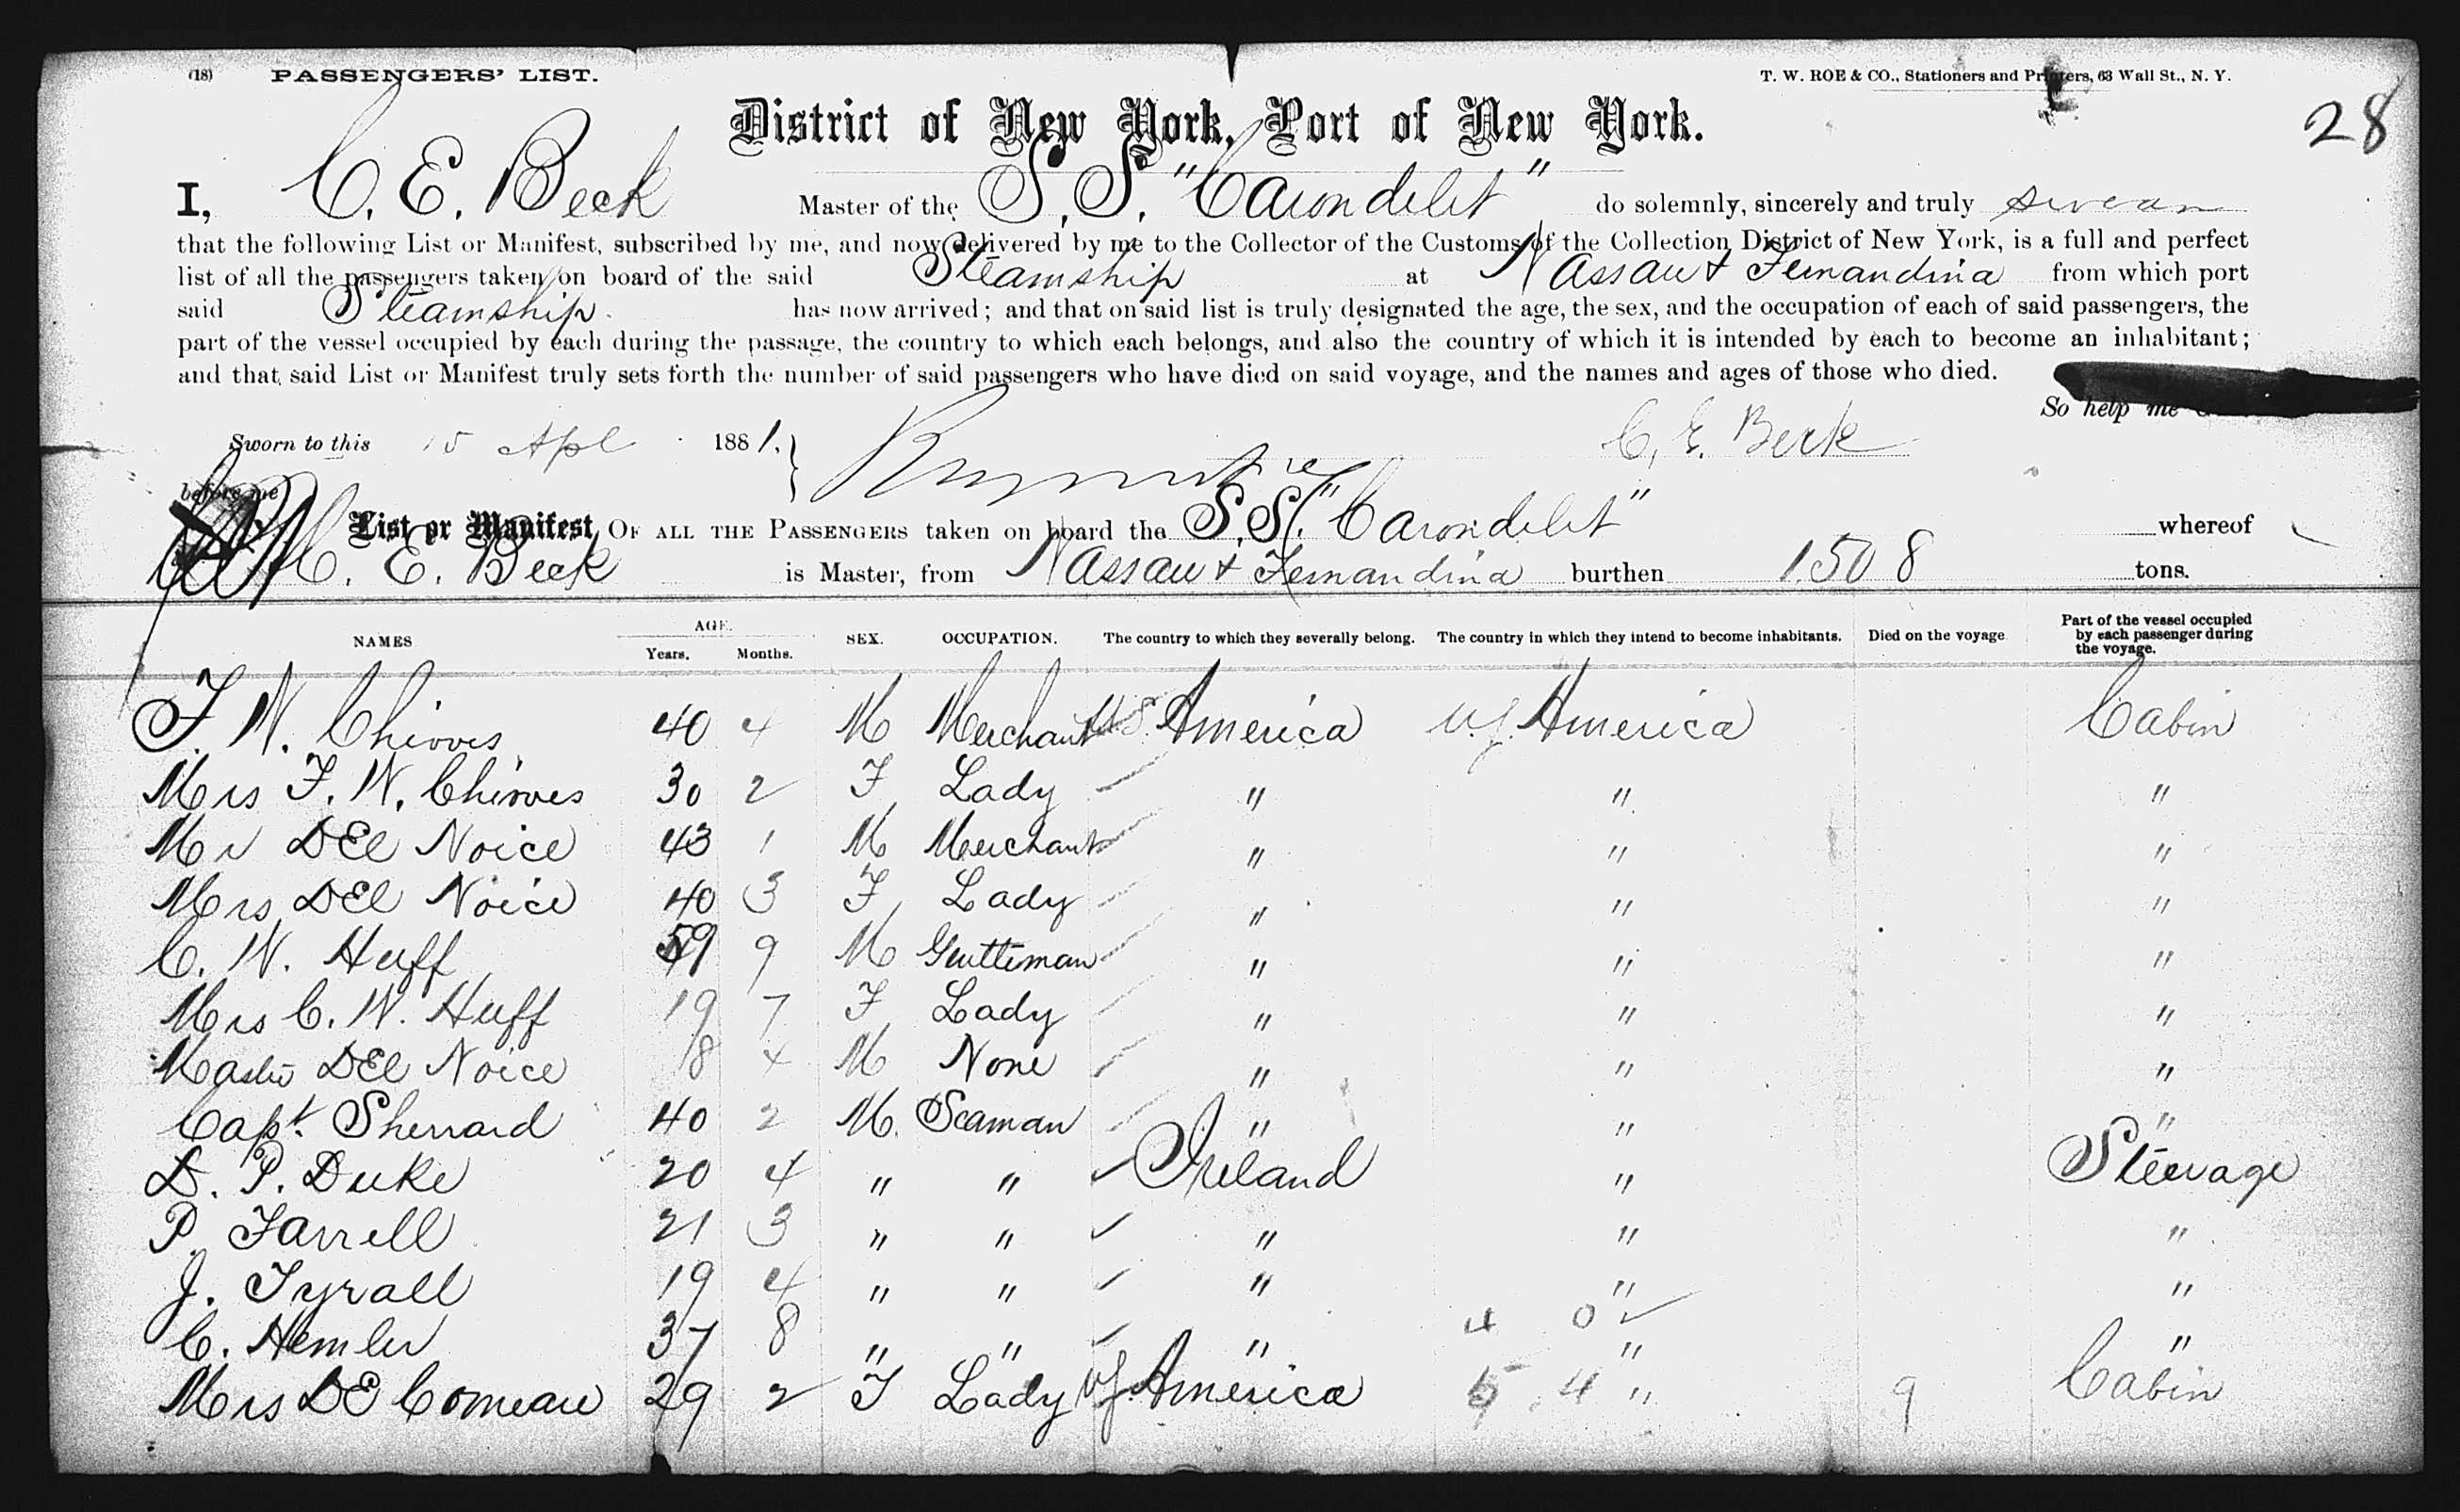 (18) PASSENGERS' LIST. T. W. ROE & CO., Stationers and Printers, 63 Wall St., N. Y.
28
District of New York, Port of New York.
I, C. E. Beck Master of the S.S. "Carondelet" do solemnly, sincerely and truly swear
that the following List or Manifest, subscribed by me, and now delivered by me to the Collector of the Customs of the Collection District of New York, is a full and perfect
list of all the passengers taken on board of the said Steamship at Nassau & Fernandina from which port
said Steamship has now arrived; and that on said list is truly designated the age, the sex, and the occupation of each of said passengers, the
part of the vessel occupied by each during the passage, the country to which each belongs, and also the country of which it is intended by each to become an inhabitant;
and that said List or Manifest truly sets forth the number of said passengers who have died on said voyage, and the names and ages of those who died.
So help me
Sworn to this 15 Apl 1881. C. E. Beck
before me
List or Manifest OF ALL THE PASSENGERS taken on board the S.S. "Carondelet" whereof
C. E. Beck is Master, from Nassau & Fernandina burthen 1508 tons.
NAMES AGE. Years. Months. SEX. OCCUPATION. The country to which they severally belong. The country in which they intend to become inhabitants. Died on the voyage Part of the vessel occupied by each passenger during the voyage.
F. W. 40 4 M Merchant U.S. America U.S. America Cabin
Mrs F. W. 30 2 F Lady " " "
Mr DEl Noice 43 1 M Merchant " " "
Mrs DEl Noice 40 3 F Lady " " "
C. W. Huff 59 9 M Gentleman " " "
Mrs C. W. Huff 19 7 F Lady " " "
Master DEl Noice 8 4 M None " " "
Capt. Sherrard 40 2 M. Seaman " " "
D. P. Duke 20 4 " " Ireland " Steerage
P. Farrell 21 3 " " " " "
J. Tyrall 19 4 " " " " "
4 0
C. Hemler 37 8 " " " " "
Mrs DE Comeau 29 2 F Lady America 5 4 " 9 Cabin